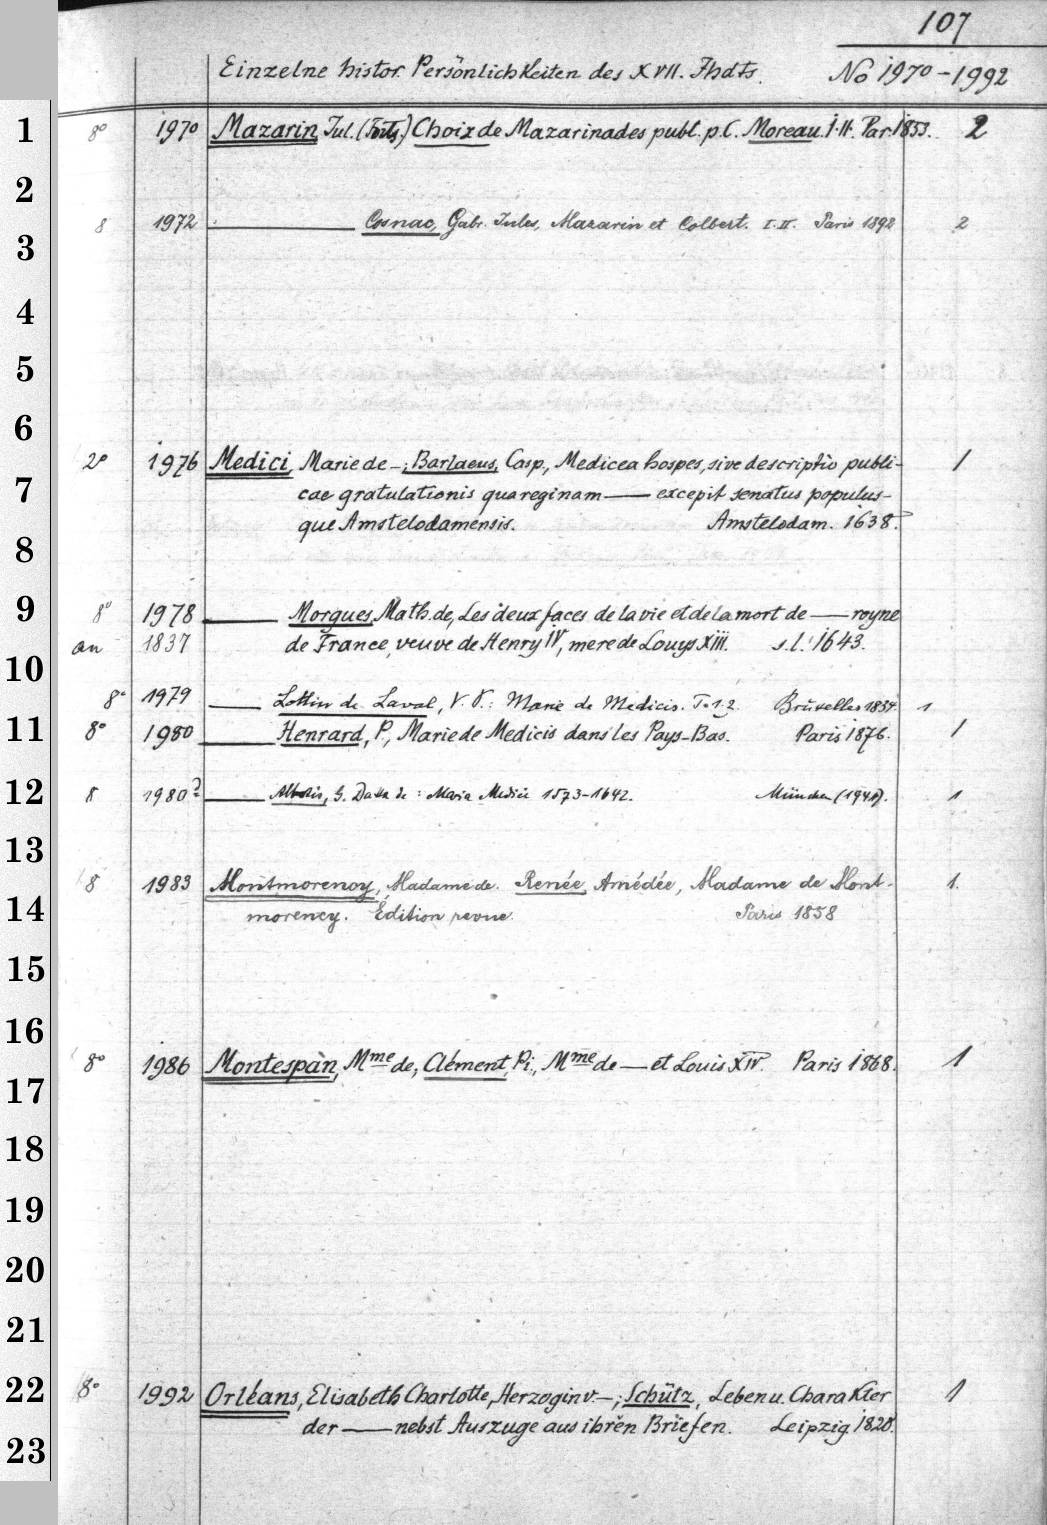 107
Einzelne histor. Persönlichkeiten des XVII. Jhdts. No 1970-1992
1 8° 1970 Mazarin Jul. (Forts.) Choix de Mazarinades publ. p. C. Moreau. I.II. Par. 1853. 2
2
8 1972 ——— Cosnac, Gabr. Jules, Mazarin et Colbert. I.II. Paris 1892 2
3
4
5
6
2° 1976 Medici, Marie de -; Barlaeus, Casp., Medicea hospes, sive descriptio publi- 1
7 cae gratulationis qua reginam —— excepit senatus populus-
que Amstelodamensis. Amstelodam. 1638.
8
9 8° 1978 —— Morgues, Math. de, Les deux faces de la vie et de la mort de —— royne
an 1837 de France, veuve de Henry IV, mere de Louys XIII. s.l. 1643.
10
8° 1979 —— Lottin de Laval, V. P.: Marie de Medicis. T. 1.2. Bruxelles 1834 1
11 8° 1980 —— Henrard, P., Marie de Medicis dans les Pays-Bas. Paris 1876. 1
12 8 1980a —— G. Dalla de: Maria Medici 1573-1642. München (1941). 1
13
8 1983 Montmorency, Madame de. Renée, Amédée, Madame de Mont- 1.
14 morency. Édition revue. Paris 1858
15
16
8° 1986 Montespan, Mme de, Clément, Pi., Mme de — et Louis XIV. Paris 1868. 1
17
18
19
20
21
22 8° 1992 Orléans, Elisabeth Charlotte, Herzogin v. -; Schütz, Leben u. Charakter 1
der —— nebst Auszuge aus ihren Briefen. Leipzig 1820.
23